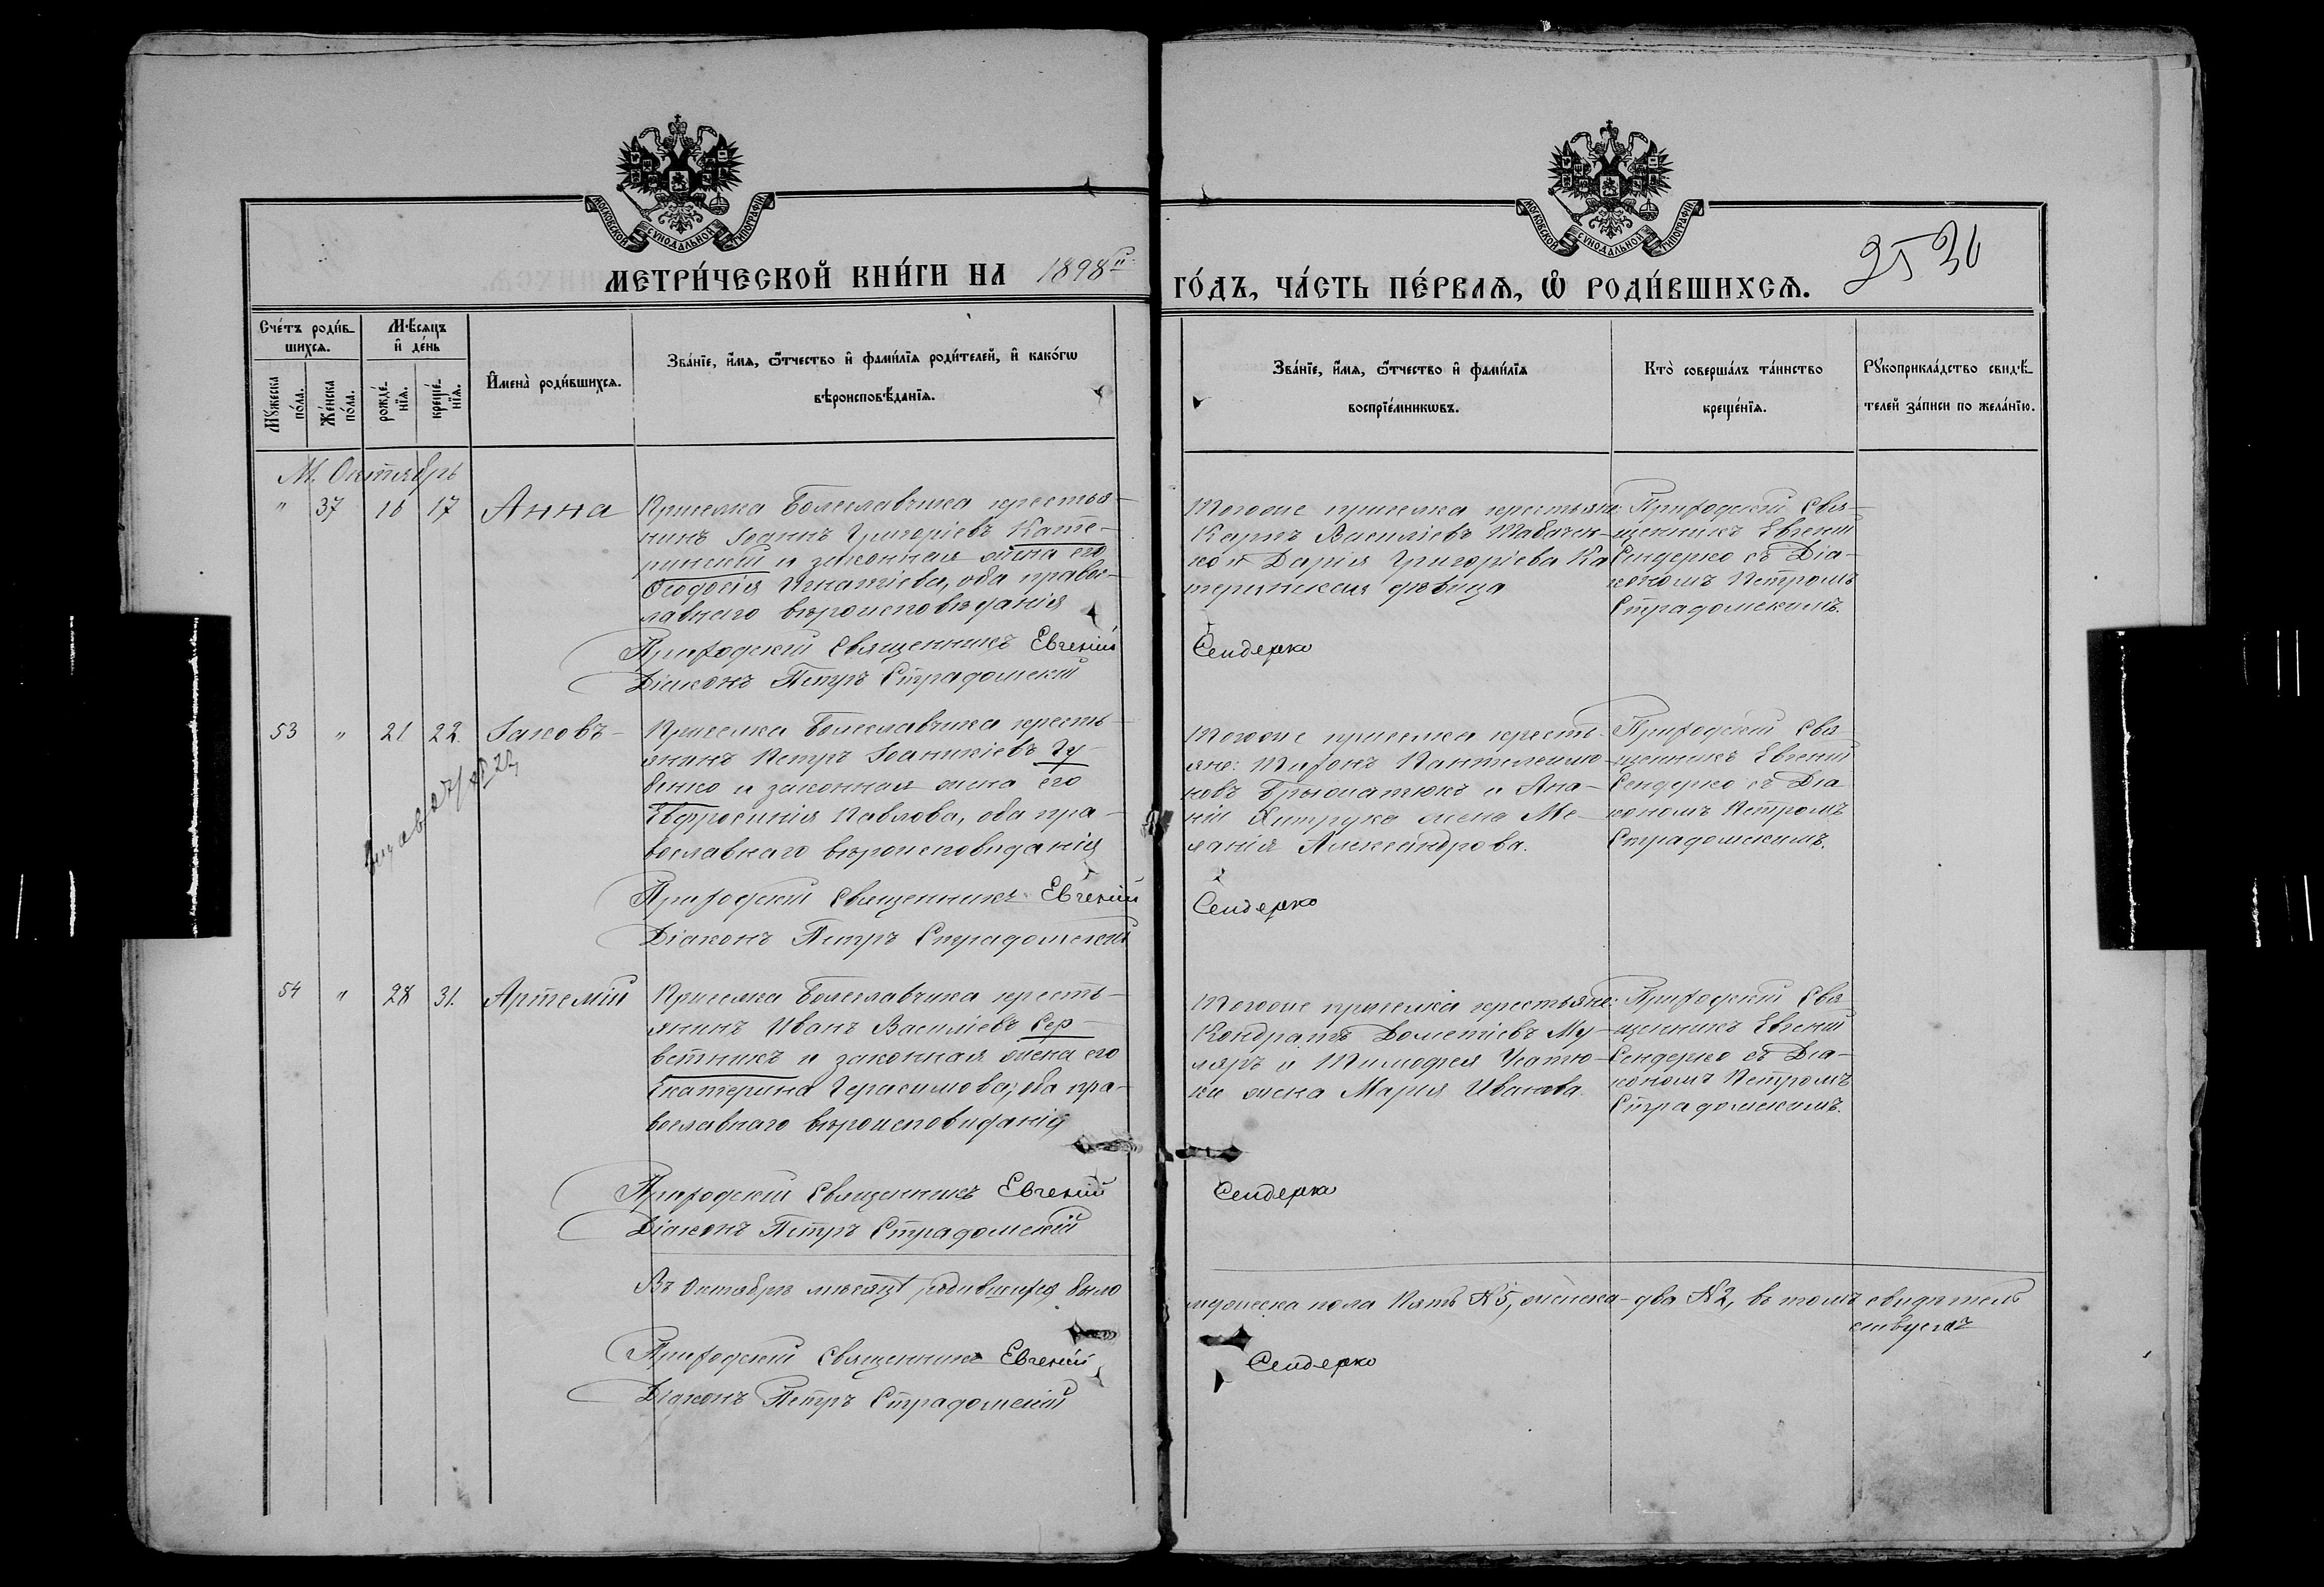 МОСКОВСКОЙ СУНОДАЛЬНОЙ ТИПОГРАФІИ
МОСКОВСКОЙ СУНОДАЛЬНОЙ ТИПОГРАФІИ
МЕТРИ́ЧЕСКОЙ КНИ́ГИ НА 1898й
ГО́ДЪ, ЧА́СТЬ ПЕ́РВАѦ, Ѡ҆ РОДИ́ВШИХСѦ.
25 30
Сче́тъ роди́в-
шихсѧ.
Мѣ́сяцъ
и҆ де́нь
Мꙋ́жеска
по́ла.
Же́нска
по́ла.
рожде́-
нїѧ.
креще́-
нїѧ.
И҆мена̀ роди́вшихсѧ.
Зва́нїе, и҆́мѧ, ѻ҆́тчество и҆ фами́лїѧ роди́телей, и҆ како́гѡ
вѣроисповѣ́данїѧ.
Зва́нїе, и҆́мѧ, ѻ҆́тчество и҆ фами́лїѧ
воспрїе́мникѡвъ.
Кто̀ соверша́лъ та́инство
креще́нїѧ.
Рꙋкоприкла́дство свидѣ́-
телей за́писи по жела́нїю.
М. Октябрь
" 37 16 17 Анна
Приселка Болеславчика крестья-
нинъ Іоаннъ Григоріевъ Кате-
ринскій и законная жена его
Ѳеодосія Игнатіева, оба правос-
лавнаго вѣроисповѣданія
Тогоже приселка крестьяне:
Карпъ Василіевъ Табачен-
ко и Дарія Григоріева Ка
теринская дѣвица
Приходскій Свя-
щенникъ Евгеній
Сендерко съ Діа-
кономъ Петромъ
Страдомскимъ.
Приходскій Священникъ Евгеній Сендерко
Діаконъ Петръ Страдомскій
53 " 21 22. Іаковъ-
Приселка Болеславчика кресть-
янинъ Петръ Іоанникіевъ Гу-
бенко и законная жена его
Евфросинія Павлова, оба пра-
вославнаго вѣроисповѣданія
Тогоже приселка кресть-
яне: Тихонъ Пантелеимо-
новъ и Ана-
нія Хитрука жена Ме-
ланія Александрова.
Приходскій Свя-
щенникъ Евгеній
Сендерко съ Діа
кономъ Петромъ
Страдомскимъ.
Приходскій Священникъ Евгеній Сендерко
Діаконъ Петръ Страдомскій
54 " 28 31. Артемій
Приселка Болеславчика кресть-
янинъ Иванъ Василіевъ Сер-
ветникъ и законная жена его
Екатерина Герасимова, оба пра-
вославнаго вѣроисповѣданія
Тогоже приселка крестьяне:
Кондратъ Дометіевъ Му-
ляръ и Тимофея
жена Марія Иванова.
Приходскій Свя-
щенникъ Евгеній
Сендерко съ Діа-
кономъ Петромъ
Страдомскимъ.
Приходскій Священникъ Евгеній Сендерко
Діаконъ Петръ Страдомскій
Въ Октябрѣ мѣсяцѣ родившихся было мужеска пола Пять №5, женска-два №2, въ томъ свидѣтель
ствуемъ
Приходскій Священникъ Евгеній Сендерко
Діаконъ Петръ Страдомскій